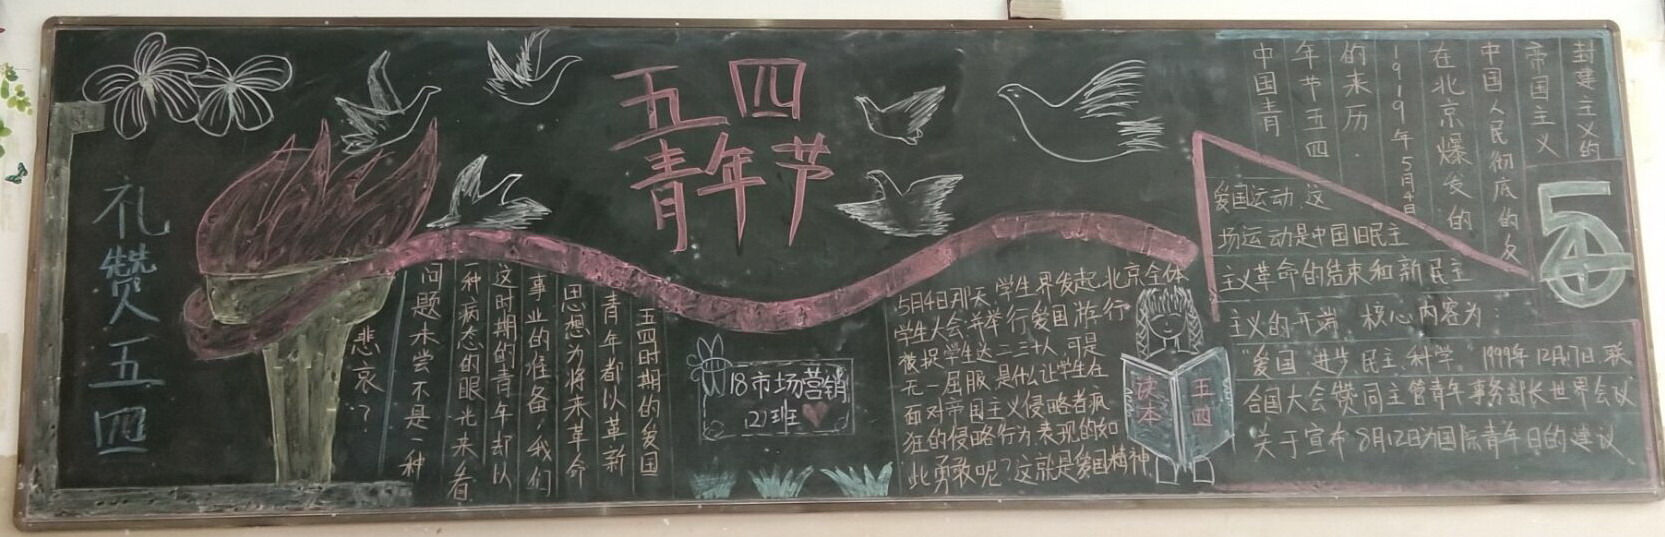 礼赞五四
五四
青年节
五四时期的爱国
青年都以革新
思想为将来革命
事业的准备,我们
这时期的青年却以
一种病态的眼光来看
问题未尝不是一种
悲哀?
18市场营销
(2)班
5月4日那天,学生界发起北京全体
学生大会,并举行爱国游行
被捉学生达二三十人,可是
无一屈服,是什么让学生在
面对帝国主义侵略者疯
狂的侵略行为表现的如
此勇敢呢?这就是爱国精神
读本
五四
中国青
年节五四
的来历.
1919年5月4日
在北京爆发的
中国人民彻底的反
帝国主义
封建主义的
爱国运动,这
场运动是中国旧民主
主义革命的结束和新民主
主义的开端 核心内容为:
“爱国 进步 民主 科学。1999年12月17日 联
合国大会赞同主管青年事务部长世界会议
关于宣布8月12日为国际青年日的建议.
54